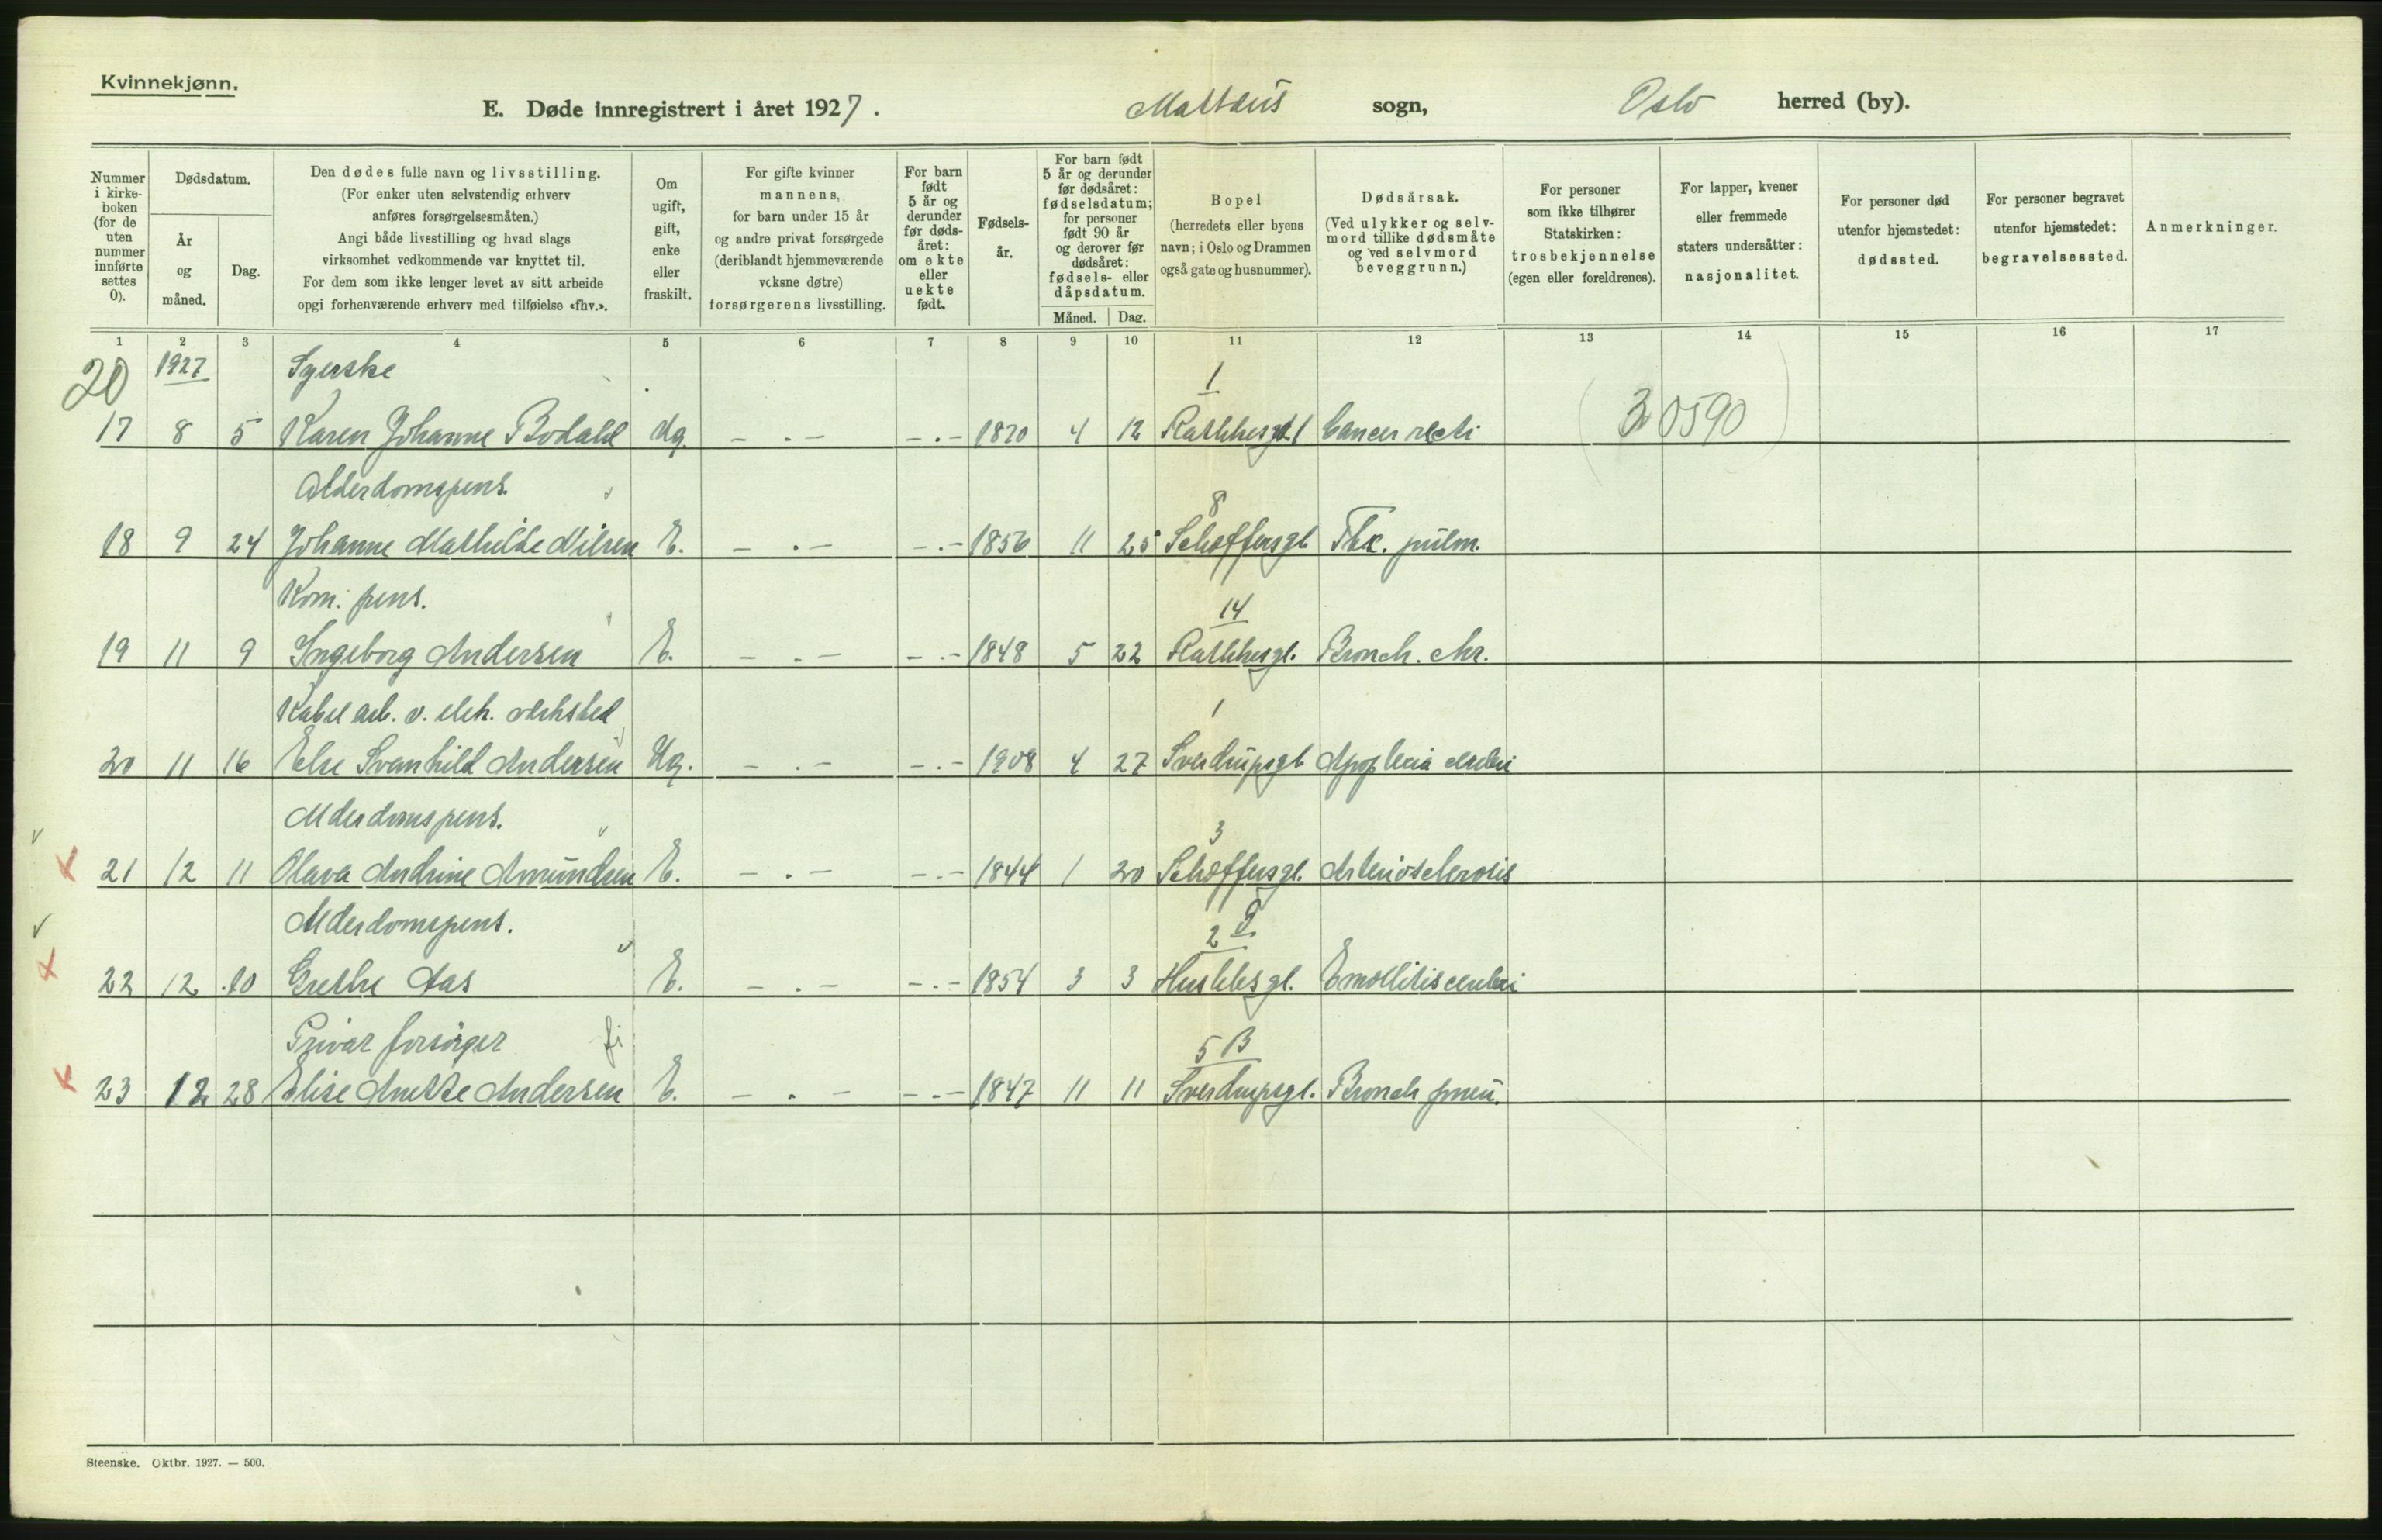 Kvinnekjønn.
E. Døde innregistrert i året 1927. Mattæus sogn, Oslo herred (by).
Nummer i kirke-boken (for de uten nummer innførte settes 0).
Dødsdatum.
År og måned.
Dag.
Den dødes fulle navn og livsstilling.
(For enker uten selvstendig erhverv
anføres forsørgelsesmåten.)
Angi både livsstilling og hvad slags
virksomhet vedkommende var knyttet til.
For dem som ikke lenger levet av sitt arbeide
opgi forhenværende erhverv med tilføielse «fhv.».
Om ugift, gift, enke eller fraskilt.
For gifte kvinner
mannens,
for barn under 15 år
og andre privat forsørgede
(deriblandt hjemmeværende
voksne døtre)
forsørgerens livsstilling.
For barn født 5 år og derunder før døds-året: om ekte eller uekte født.
Fødsels-år.
For barn født
5 år og derunder
før dødsåret:
fødselsdatum;
for personer
født 90 år
og derover før
dødsåret:
fødsels- eller
dåpsdatum.
Måned. Dag.
Bopel
(herredets eller byens
navn; i Oslo og Drammen
også gate og husnummer).
Dødsårsak.
(Ved ulykker og selv-
mord tillike dødsmåte
og ved selvmord
beveggrunn.)
For personer
som ikke tilhører
Statskirken:
trosbekjennelse
(egen eller foreldrenes).
For lapper, kvener
eller fremmede
staters undersåtter:
nasjonalitet.
For personer død
utenfor hjemstedet:
dødssted.
For personer begravet
utenfor hjemstedet:
begravelsessted.
Anmerkninger.
1 2 3 4 5 6 7 8 9 10 11 12 13 14 15 16 17
20 1927 Syerske 1
17 8 5 Karen Johanne Bodahl Ug. - . - - . - 1870 4 12 Rathkesgt 1 Cancer recti (30590)
Alderdomspens. 8
18 9 24 Johanne Mathilde Nilsen E. - . - - . - 1856 11 25 Schøffersgt Tbc. pulm.
Kom. pens. 14
19 11 9 Ingeborg Andersen E. - . - - . - 1848 5 22 Rathkesgt. Bronch. chr.
Kabel arb. v. elek. verksted 1
20 11 16 Else Svanhild Andersen Ug. - . - - . - 1908 4 27 Sverdrupsgt Apoplexia cerebri
Alderdomspens. 3
21 12 11 Olava Andrine Amundsen E. - . - - . - 1844 1 20 Schøffersgt. Arteriosclerosis
Alderdomspens. 2
22 12 10 Grethe Aas E. - . - - . - 1854 3 3 Herslebsgt. Emollitis cerebri
Privat forsörget 5 B
23 12 28 Elise Anette Andersen E. - . - - . - 1847 11 11 Sverdrupsgt. Bronch pneu.
Steenske. Oktbr. 1927. — 500.